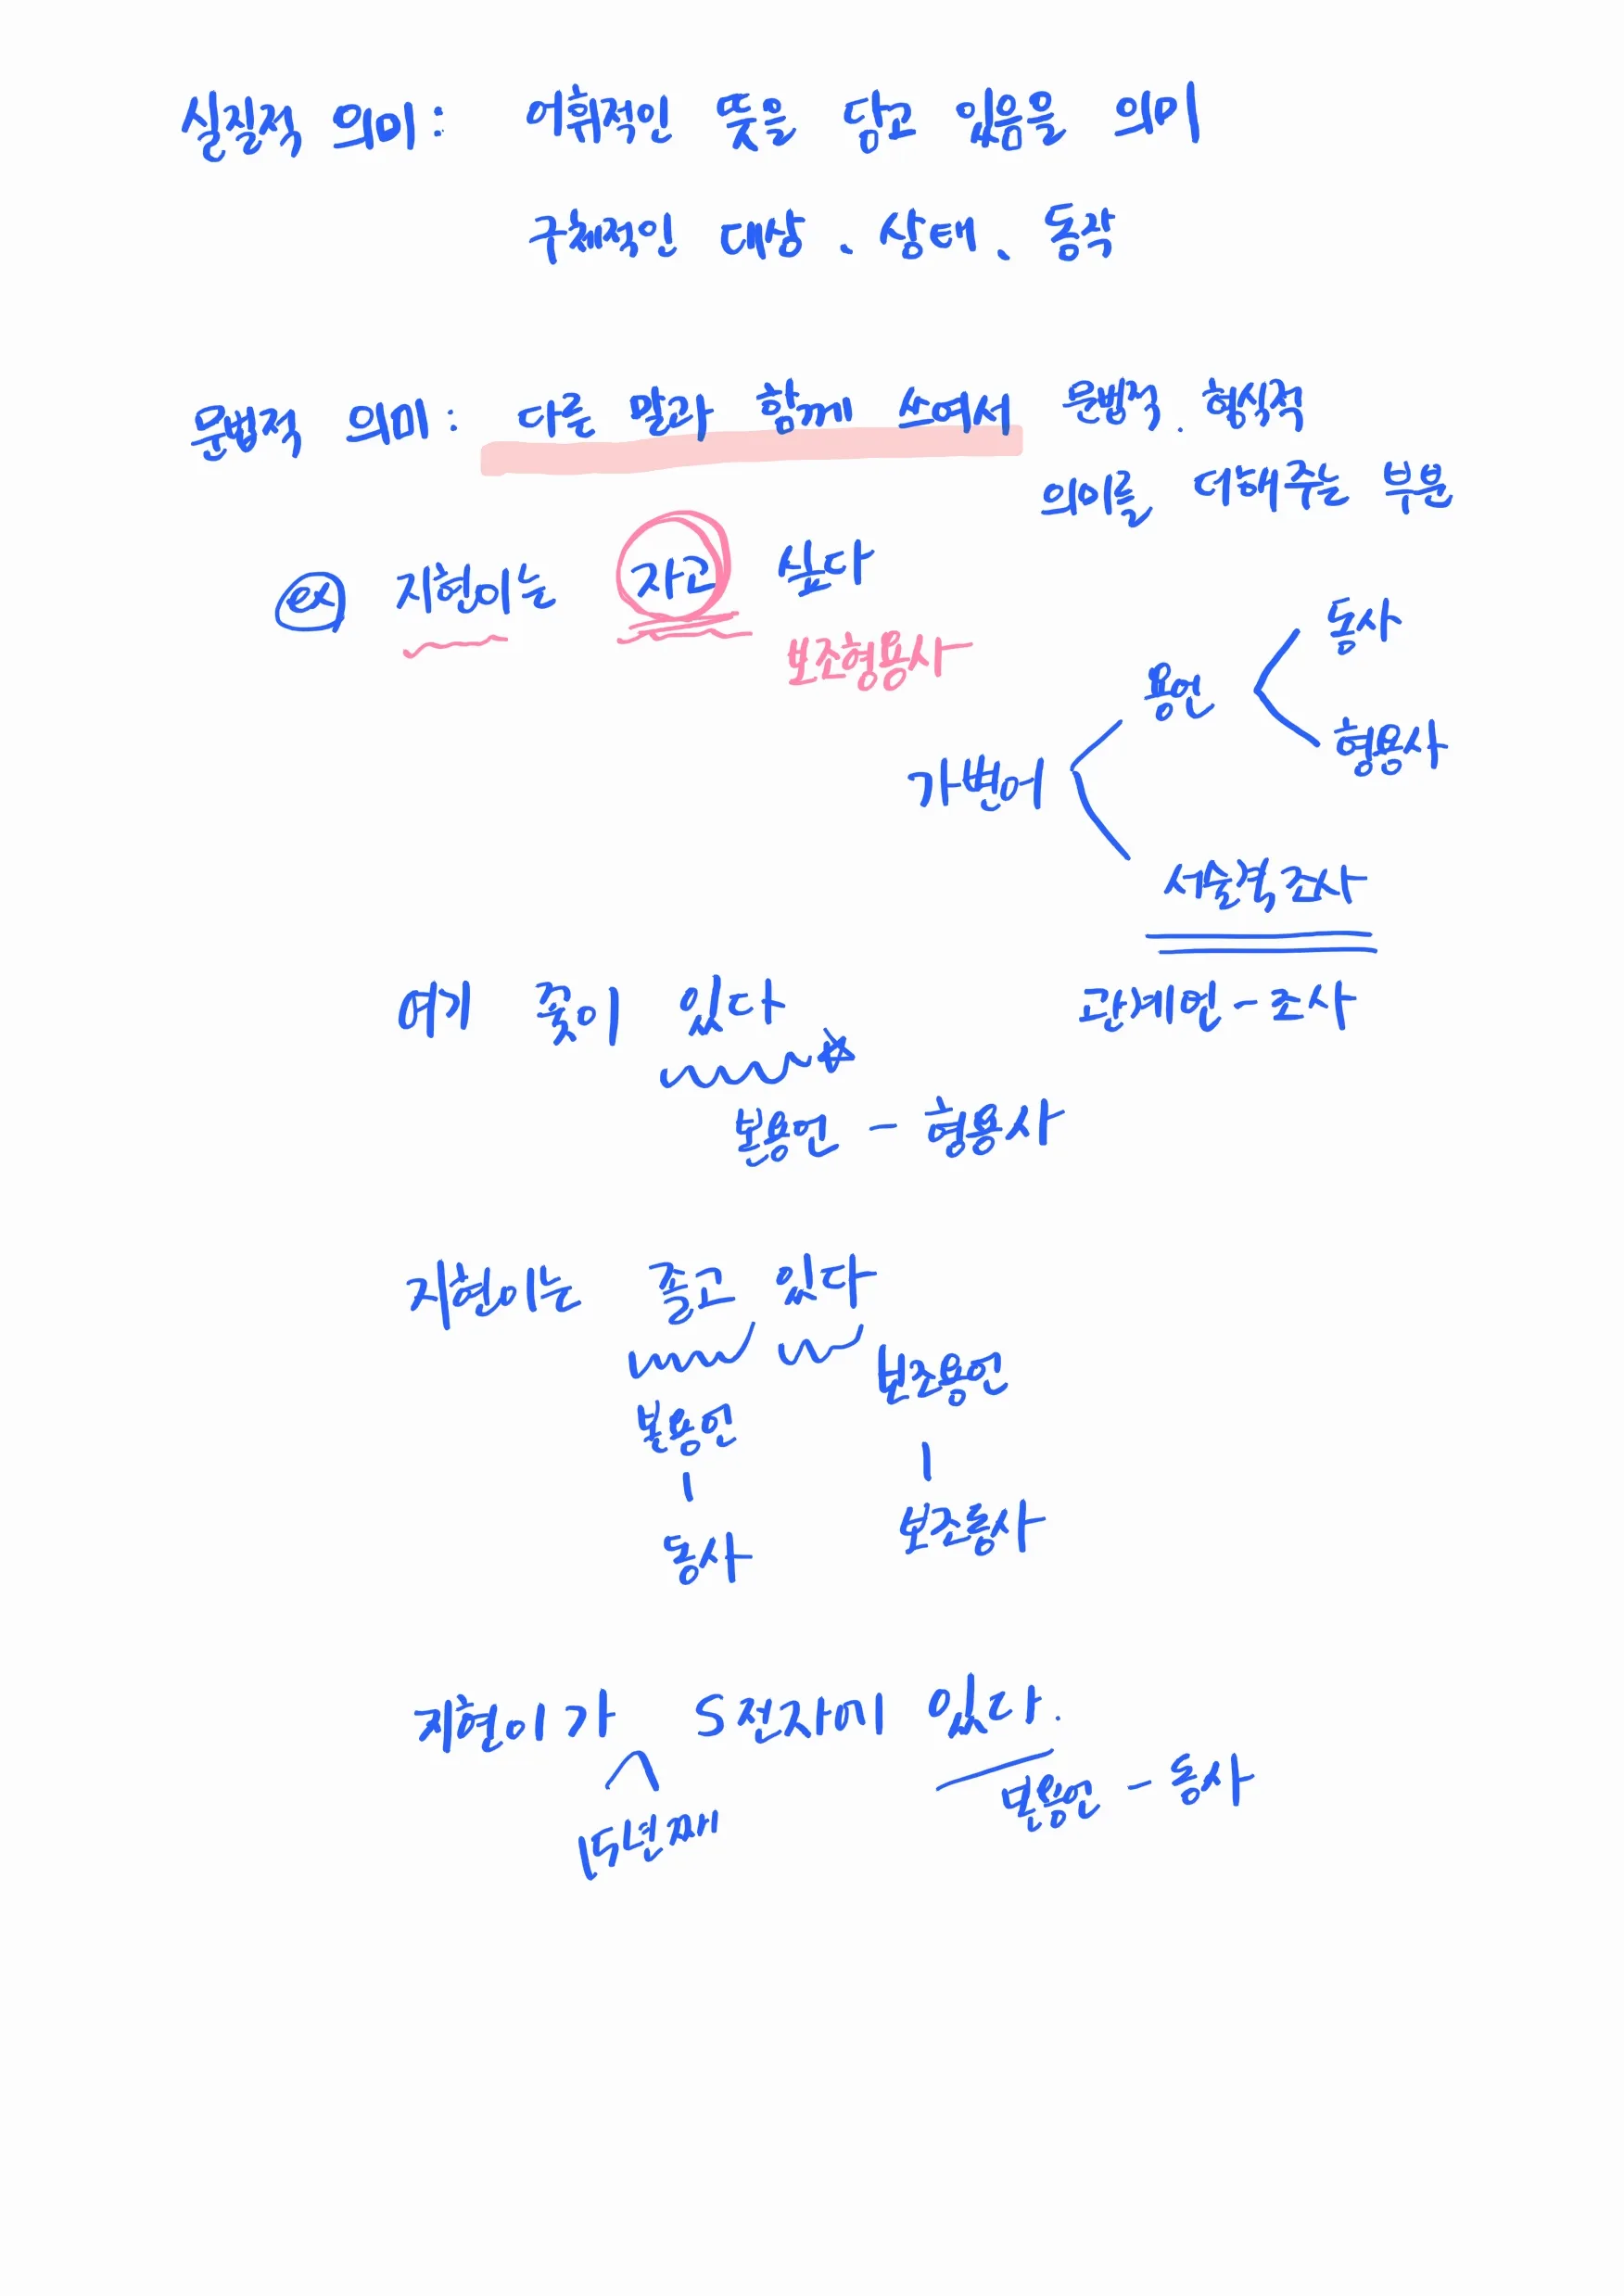 실질적 의미: 어휘적인 뜻을 담고 있음을 의미
구체적인 대상, 상태, 동작
문법적 의미: 다른 말과 함께 쓰여서 문법적, 형식적
의미를 더해주는 부분
ex 지현이는 자고 싶다
보조형용사
동사
용언
형용사
가변어
서술격조사
관계언-조사
여기 꽃이 있다
본용언 - 형용사
지현이는 졸고 있다
본용언 보조용언
동사 보조동사
지현이가 S전자에 있다.
15년째 본용언 - 동사